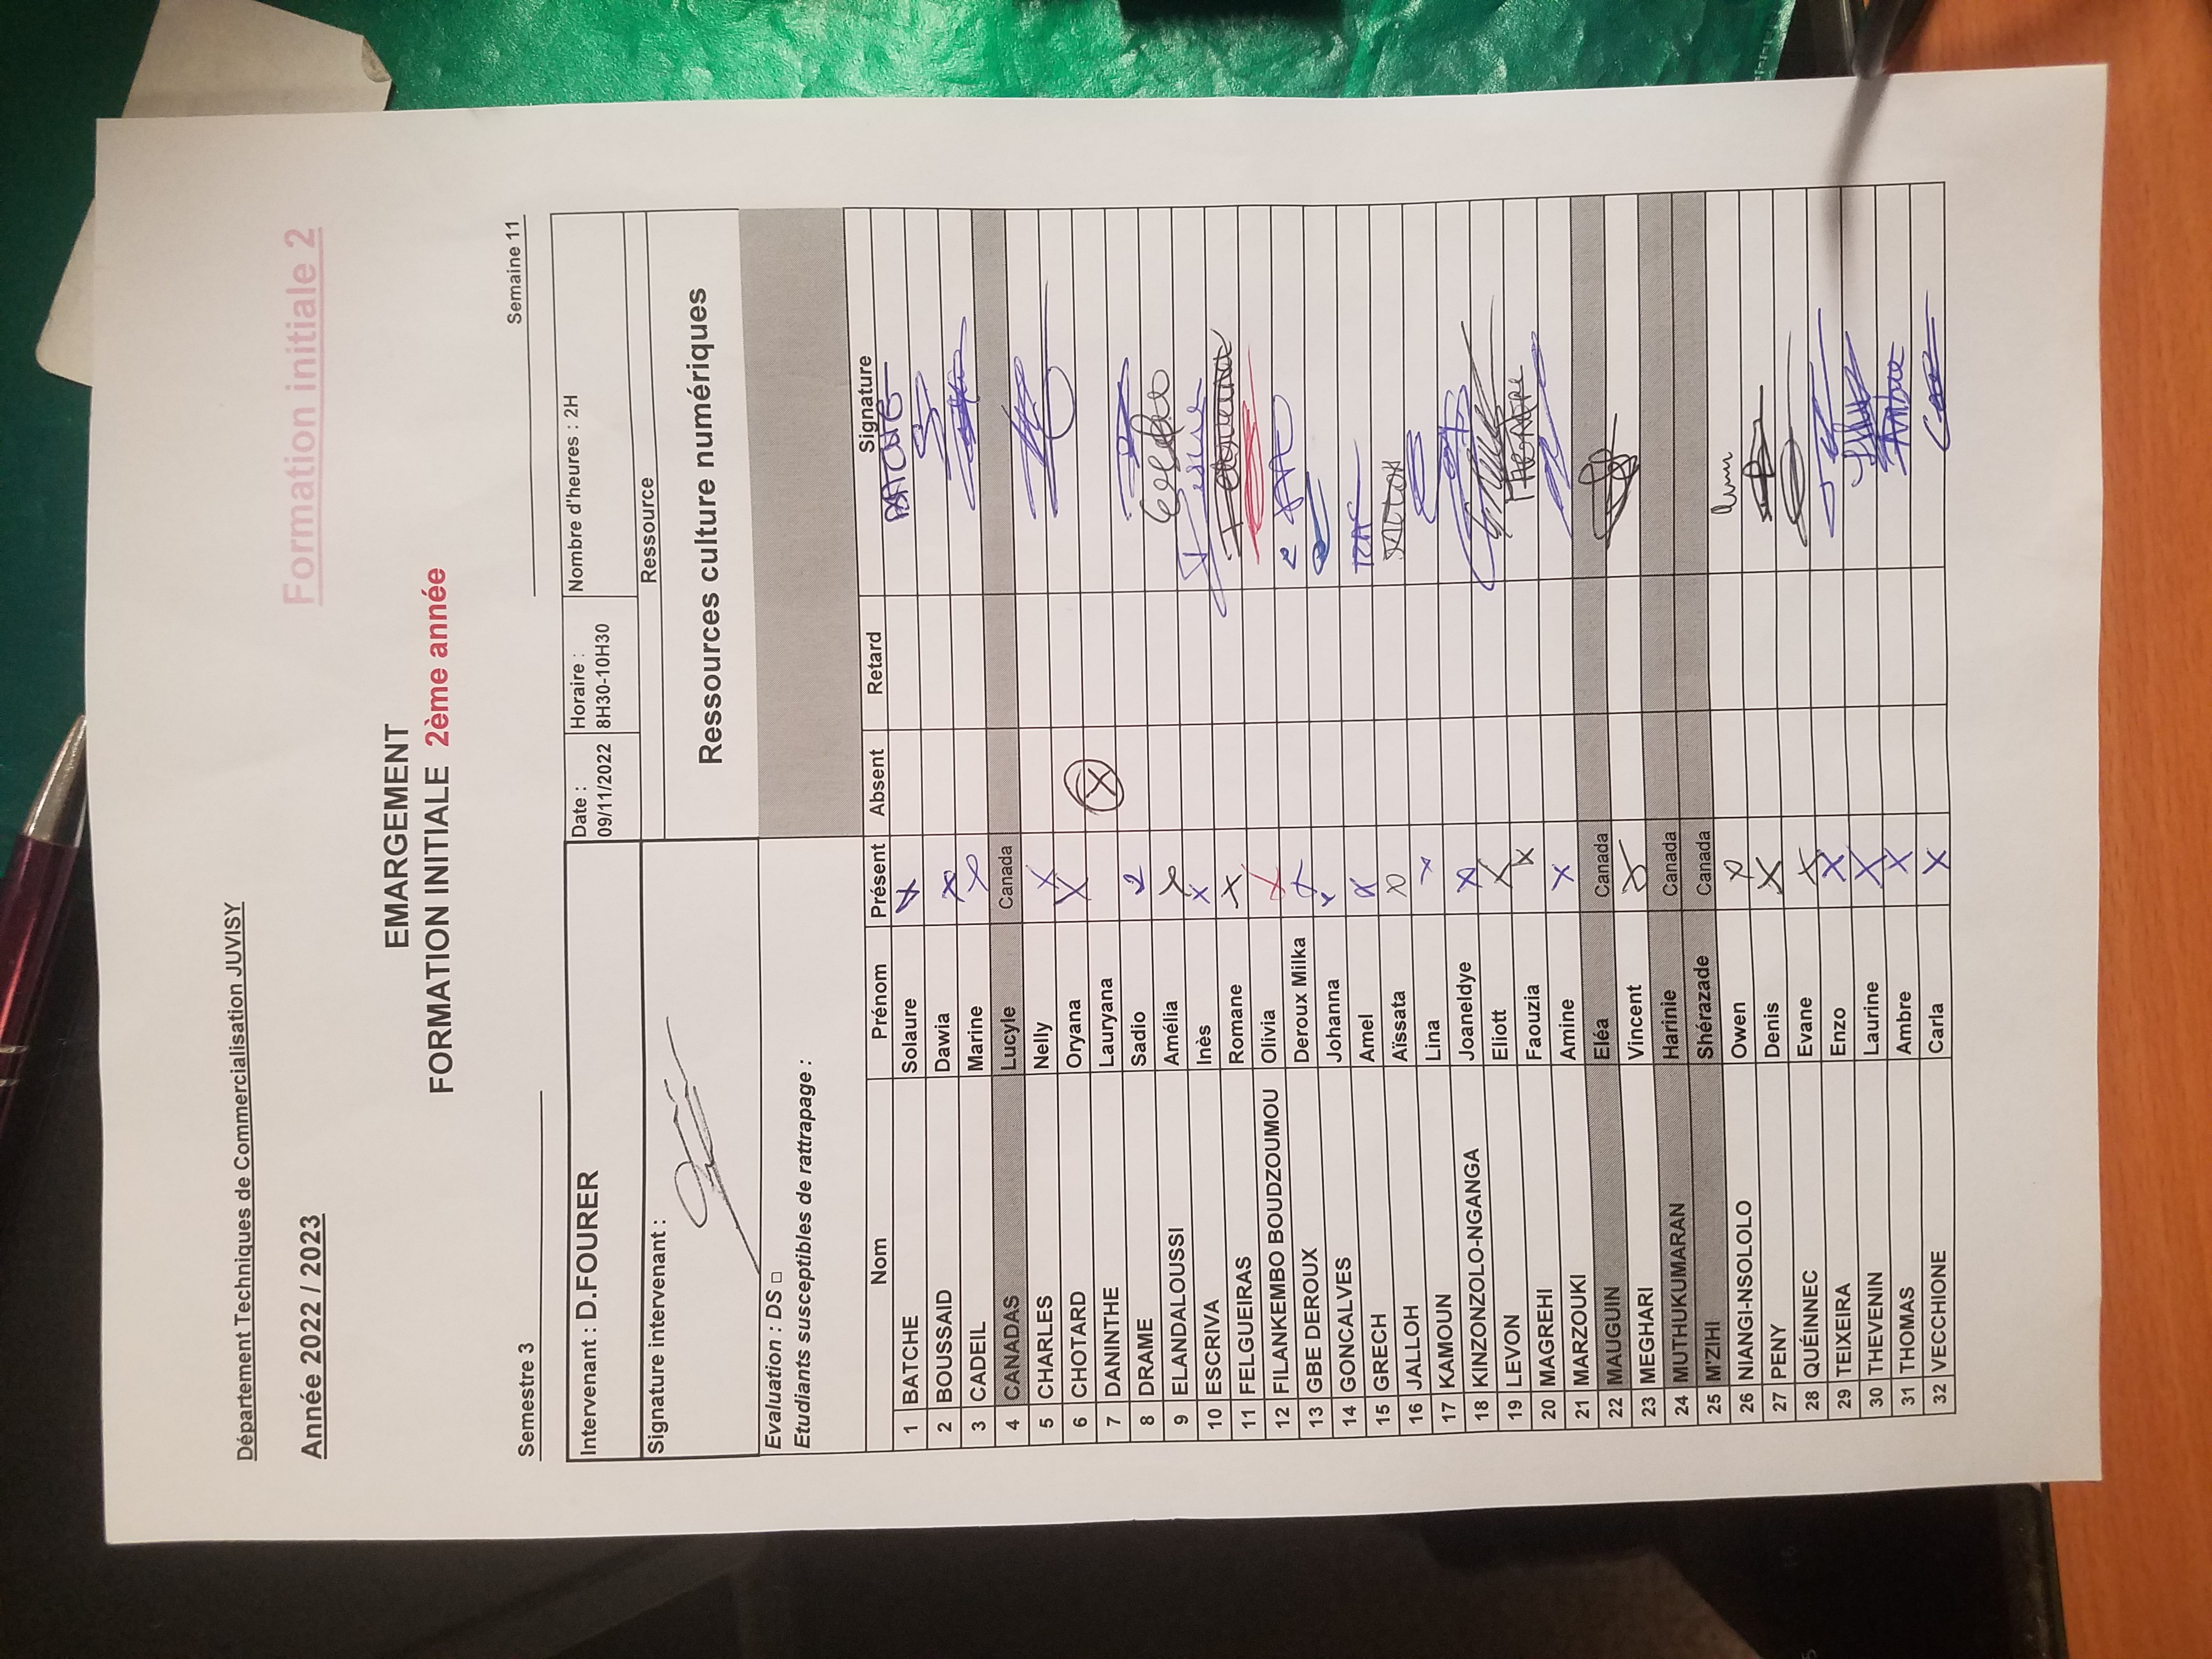 Département Techniques de Commercialisation JUVISY
Année 2022 / 2023
Formation initiale 2
EMARGEMENT
FORMATION INITIALE 2ème année
Semestre 3
Semaine 11
Intervenant : D.FOURER
Date :
09/11/2022
Horaire :
8H30-10H30
Nombre d'heures : 2H
Signature intervenant :
Ressource
Ressources culture numériques
Evaluation : DS □
Etudiants susceptibles de rattrapage :
Nom Prénom Présent Absent Retard Signature
1 BATCHE Solaure X BATCHE
2 BOUSSAID Dawia X
3 CADEIL Marine X
4 CANADAS Lucyle Canada
5 CHARLES Nelly X
6 CHOTARD Oryana X
7 DANINTHE Lauryana X
8 DRAME Sadio
9 ELANDALOUSSI Amélia X
10 ESCRIVA Inès X
11 FELGUEIRAS Romane X
12 FILANKEMBO BOUDZOUMOU Olivia X
13 GBE DEROUX Deroux Milka X
14 GONCALVES Johanna X
15 GRECH Amel X
16 JALLOH Aïssata X JALLOH
17 KAMOUN Lina X
18 KINZONZOLO-NGANGA Joaneldye X
19 LEVON Eliott X
20 MAGREHI Faouzia X
21 MARZOUKI Amine X
22 MAUGUIN Eléa Canada
23 MEGHARI Vincent X
24 MUTHUKUMARAN Harinie Canada
25 M'ZIHI Shérazade Canada
26 NIANGI-NSOLOLO Owen X
27 PENY Denis X
28 QUÉINNEC Evane X
29 TEIXEIRA Enzo X
30 THEVENIN Laurine X
31 THOMAS Ambre X Ambre
32 VECCHIONE Carla X